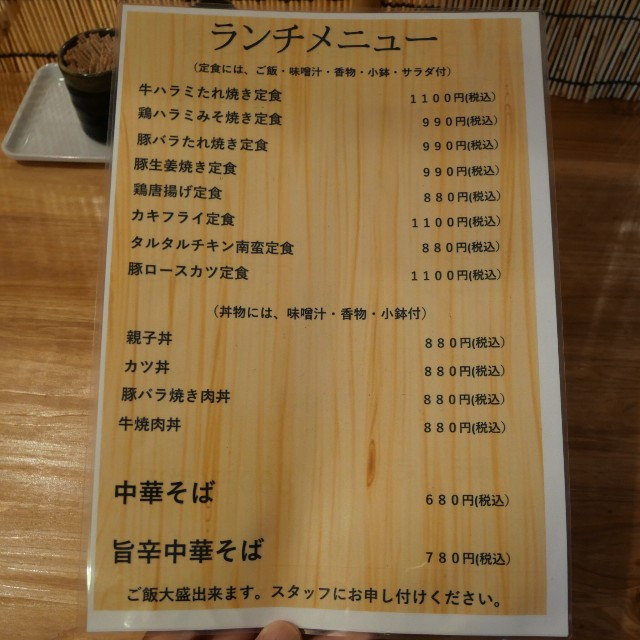 ランチメニュー
(定食には、ご飯・味噌汁・香物・小鉢・サラダ付)
牛ハラミたれ焼き定食 1100円(税込)
鶏ハラミみそ焼き定食 990円(税込)
豚バラたれ焼き定食 990円(税込)
豚生姜焼き定食 990円(税込)
鶏唐揚げ定食 880円(税込)
カキフライ定食 1100円(税込)
タルタルチキン南蛮定食 880円(税込)
豚ロースカツ定食 1100円(税込)
(丼物には、味噌汁・香物・小鉢付)
親子丼 880円(税込)
カツ丼 880円(税込)
豚バラ焼き肉丼 880円(税込)
牛焼肉丼 880円(税込)
中華そば 680円(税込)
旨辛中華そば 780円(税込)
ご飯大盛出来ます。スタッフにお申し付けください。